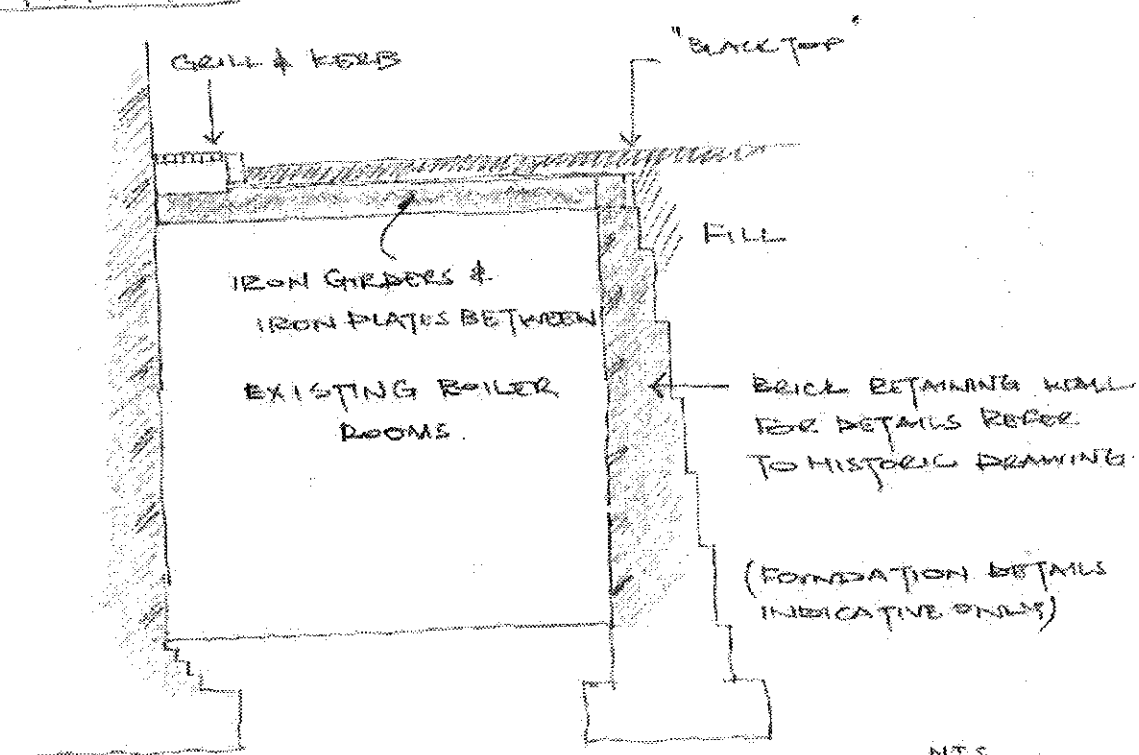 GRILL & KERB
"BLACK TOP"
FILL
IRON GIRDERS &
IRON PLATES BETWEEN
EXISTING BOILER
ROOMS.
BRICK RETAINING WALL
FOR DETAILS REFER
TO HISTORIC DRAWING.
(FOUNDATION DETAILS
INDICATIVE ONLY)
NTS